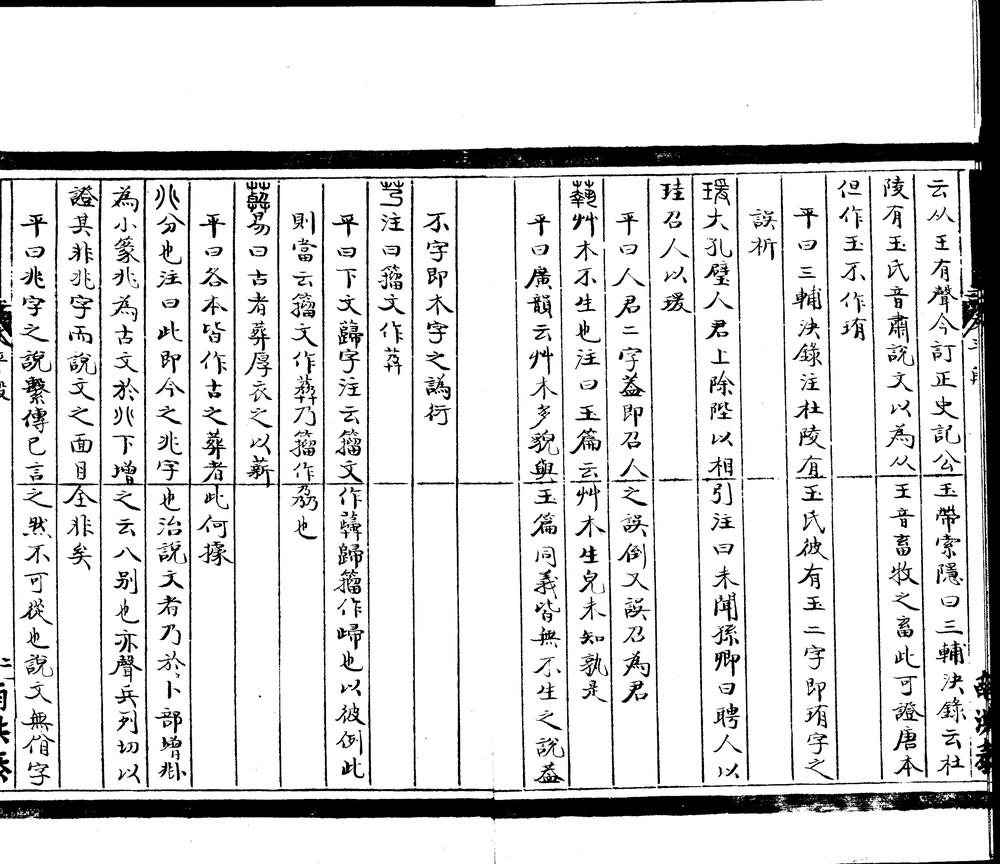 云从王有聲今訂正史記公玉帶索隱曰三輔決錄云杜
陵有玉氏音肅說文以為从王音畜牧之畜此可證唐本
但作玉不作珛
平曰三輔決錄注杜陵有玉氏彼有玉二字即珛字之
誤析
瑗大孔璧人君上除陛以相引注曰未聞孫卿曰聘人以
珪召人以瑗
平曰人君二字葢即召人之誤倒又誤召為君
蓻艸木不生也注曰玉篇云艸木生皃未知孰是
平曰廣韻云艸木多貌與玉篇同義皆無不生之說葢
不字即木字之譌衍
芎注曰籀文作
平曰下文歸字注云籀文作歸籀作歸也以彼例此
則當云籀文作乃籀作也
葬易曰古者葬厚衣之以薪
平曰各本皆作古之葬者此何據
𠔁分也注曰此即今之兆字也治說文者乃於卜部增𠧞
為小篆兆為古文於𠔁下增之云八別也亦聲兵列切以
證其非兆字而說文之面目全非矣
平曰兆字之說繫傳已言之然不可從也說文無偺字